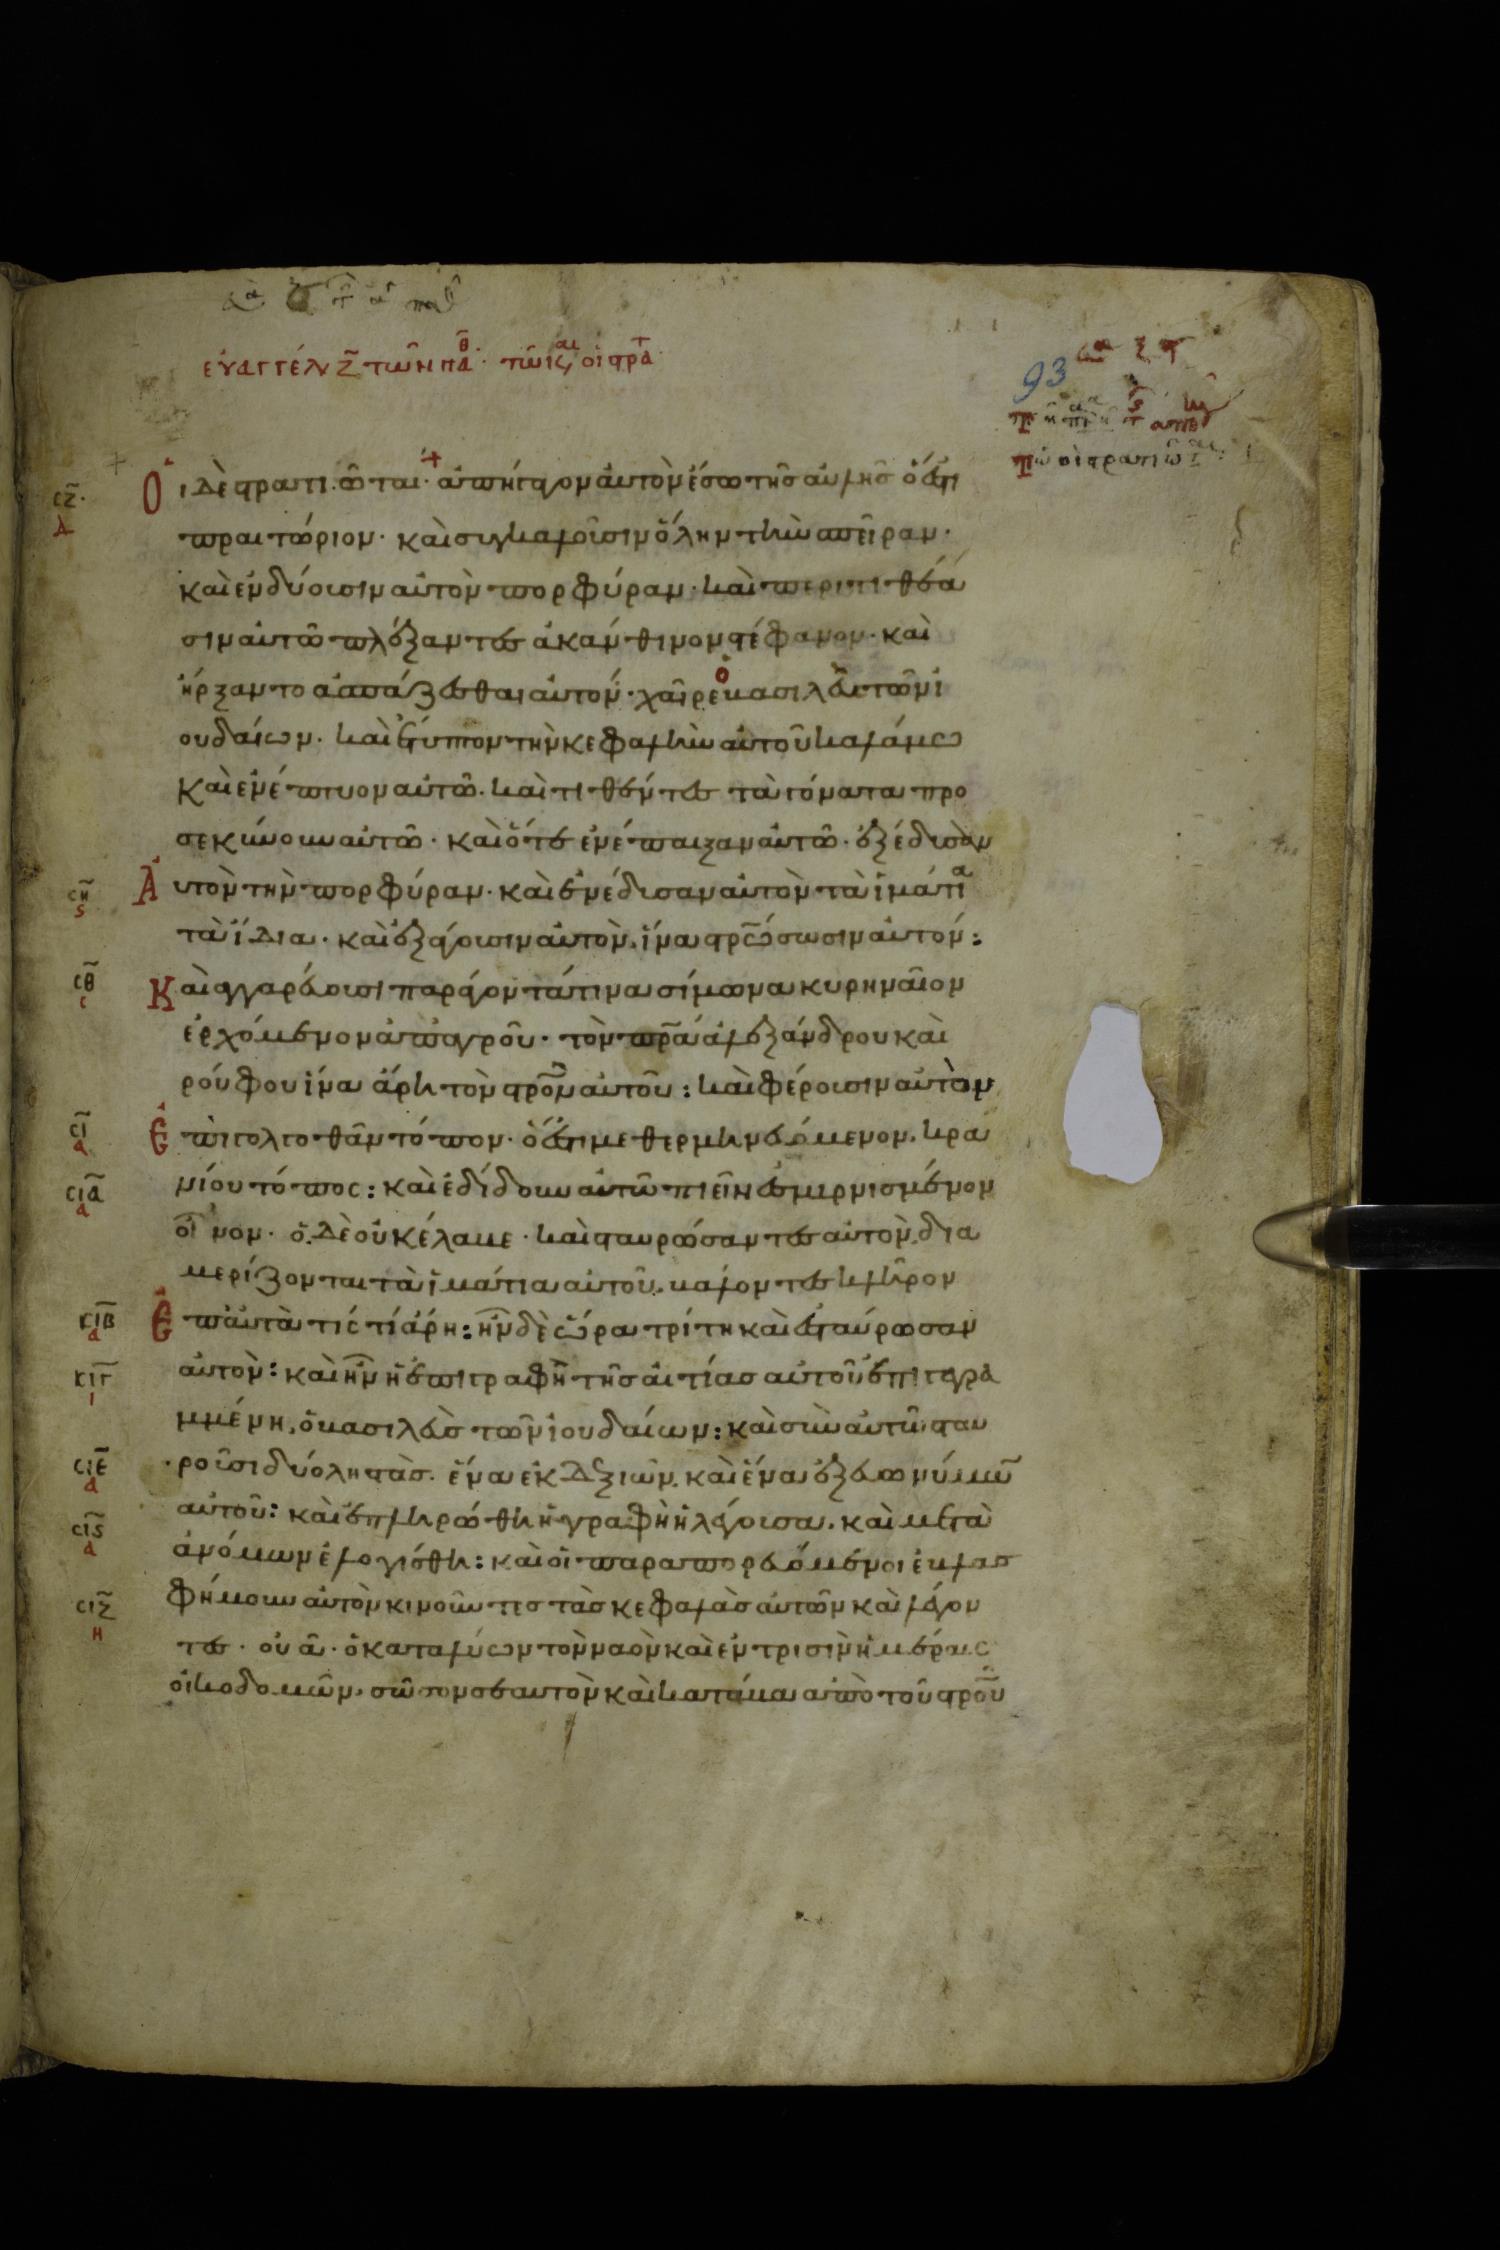 εὐαγγέλ ζ τῶν παθ · τῶ κ, οἱ στρατ
93
Οἱ δὲ στρατιῶται · ἀπήγαγον αὐτὸν ἔσω τῆς αὐλῆς ὅ ἐστι
πραιτώριον · καὶ συγκαλοῦσιν ὅλην τὴν σπεῖραν ·
καὶ ἐνδύουσιν αὐτὸν πορφύραν · καὶ περιτιθέα
σιν αὐτῶ πλέξαντες ἀκάνθινον στέφανον · καὶ
ἤρξαντο ἀσπάζεσθαι αὐτόν · χαῖρε ὁ βασιλεὺς τῶν ἰ
ουδαίων · καὶ ἔτυπτον τὴν κεφαλὴν αὐτοῦ καλάμω
καὶ ἐνέπτυον αὐτῶ · καὶ τιθέντες τὰ γόνατα προ
σεκύνουν αὐτῶ · καὶ ὅτε ἐνέπαιξαν αὐτῶ · ἐξέδυσαν
Αὐτὸν τὴν πορφύραν · καὶ ἐνέδυσαν αὐτὸν τὰ ἱμάτια
τὰ ἴδια · καὶ ἐξάγουσιν αὐτὸν, ἵνα στρώσωσιν αὐτόν :
Καὶ ἀγγαρεύουσι παράγοντά τινα σίμωνα κυρηναῖον
ἐρχόμενον ἀπ' ἀγροῦ · τὸν πρα ἀλεξάνδρου καὶ
ρούφου ἵνα ἄρη τὸν στρον αὐτοῦ : καὶ φέρουσιν αὐτὸν
Ἐπὶ γολγοθᾶν τόπον · ὅ ἐστι μεθερμηνευόμενον, κρα
νίου τόπος : καὶ ἐδίδουν αὐτῶ πιεῖν ἐσμυρνισμένον
οἶνον · ὁ δὲ οὐκ ἔλαβε · καὶ σταυρώσαντες αὐτὸν, δια
μερίζονται τὰ ἱμάτια αὐτοῦ, βάλοντες κλῆρον
Ἐπ' αὐτὰ τίς τί ἄρη : ἦν δὲ ὥρα τρίτη καὶ ἐσταύρωσαν
αὐτὸν : καὶ ἦν ἡ ἐπιγραφὴ τῆς αἰτίας αὐτοῦ ἐπιγεγρα
μμένη, ὁ βασιλεὺς τῶν ἰουδαίων : καὶ σὺν αὐτῶ σταυ
ροῦσι δύο ληστὰς · ἕνα ἐκ δεξιῶν, καὶ ἕνα ἐξ εὐωνύμων
αὐτοῦ : καὶ ἐπληρώθη ἡ γραφὴ ἡ λέγουσα, καὶ μετὰ
ἀνόμων ἐλογίσθη : καὶ οἱ παραπορευόμενοι ἐβλασ
φήμουν αὐτὸν κινοῦντες τὰς κεφαλὰς αὐτῶν καὶ λέγον
τες · οὐᾶ · ὁ καταλύων τὸν ναὸν καὶ ἐν τρισὶν ἡμέραις
οἰκοδομῶν, σῶσον σεαυτὸν καὶ κατάβα ἀπὸ τοῦ στρου
σζ
Α
ση
ς
σθ
ς
σι
Α
σια
Α
σιβ
Α
σιγ
Ι
σιε
Α
σις
Α
σιζ
Η